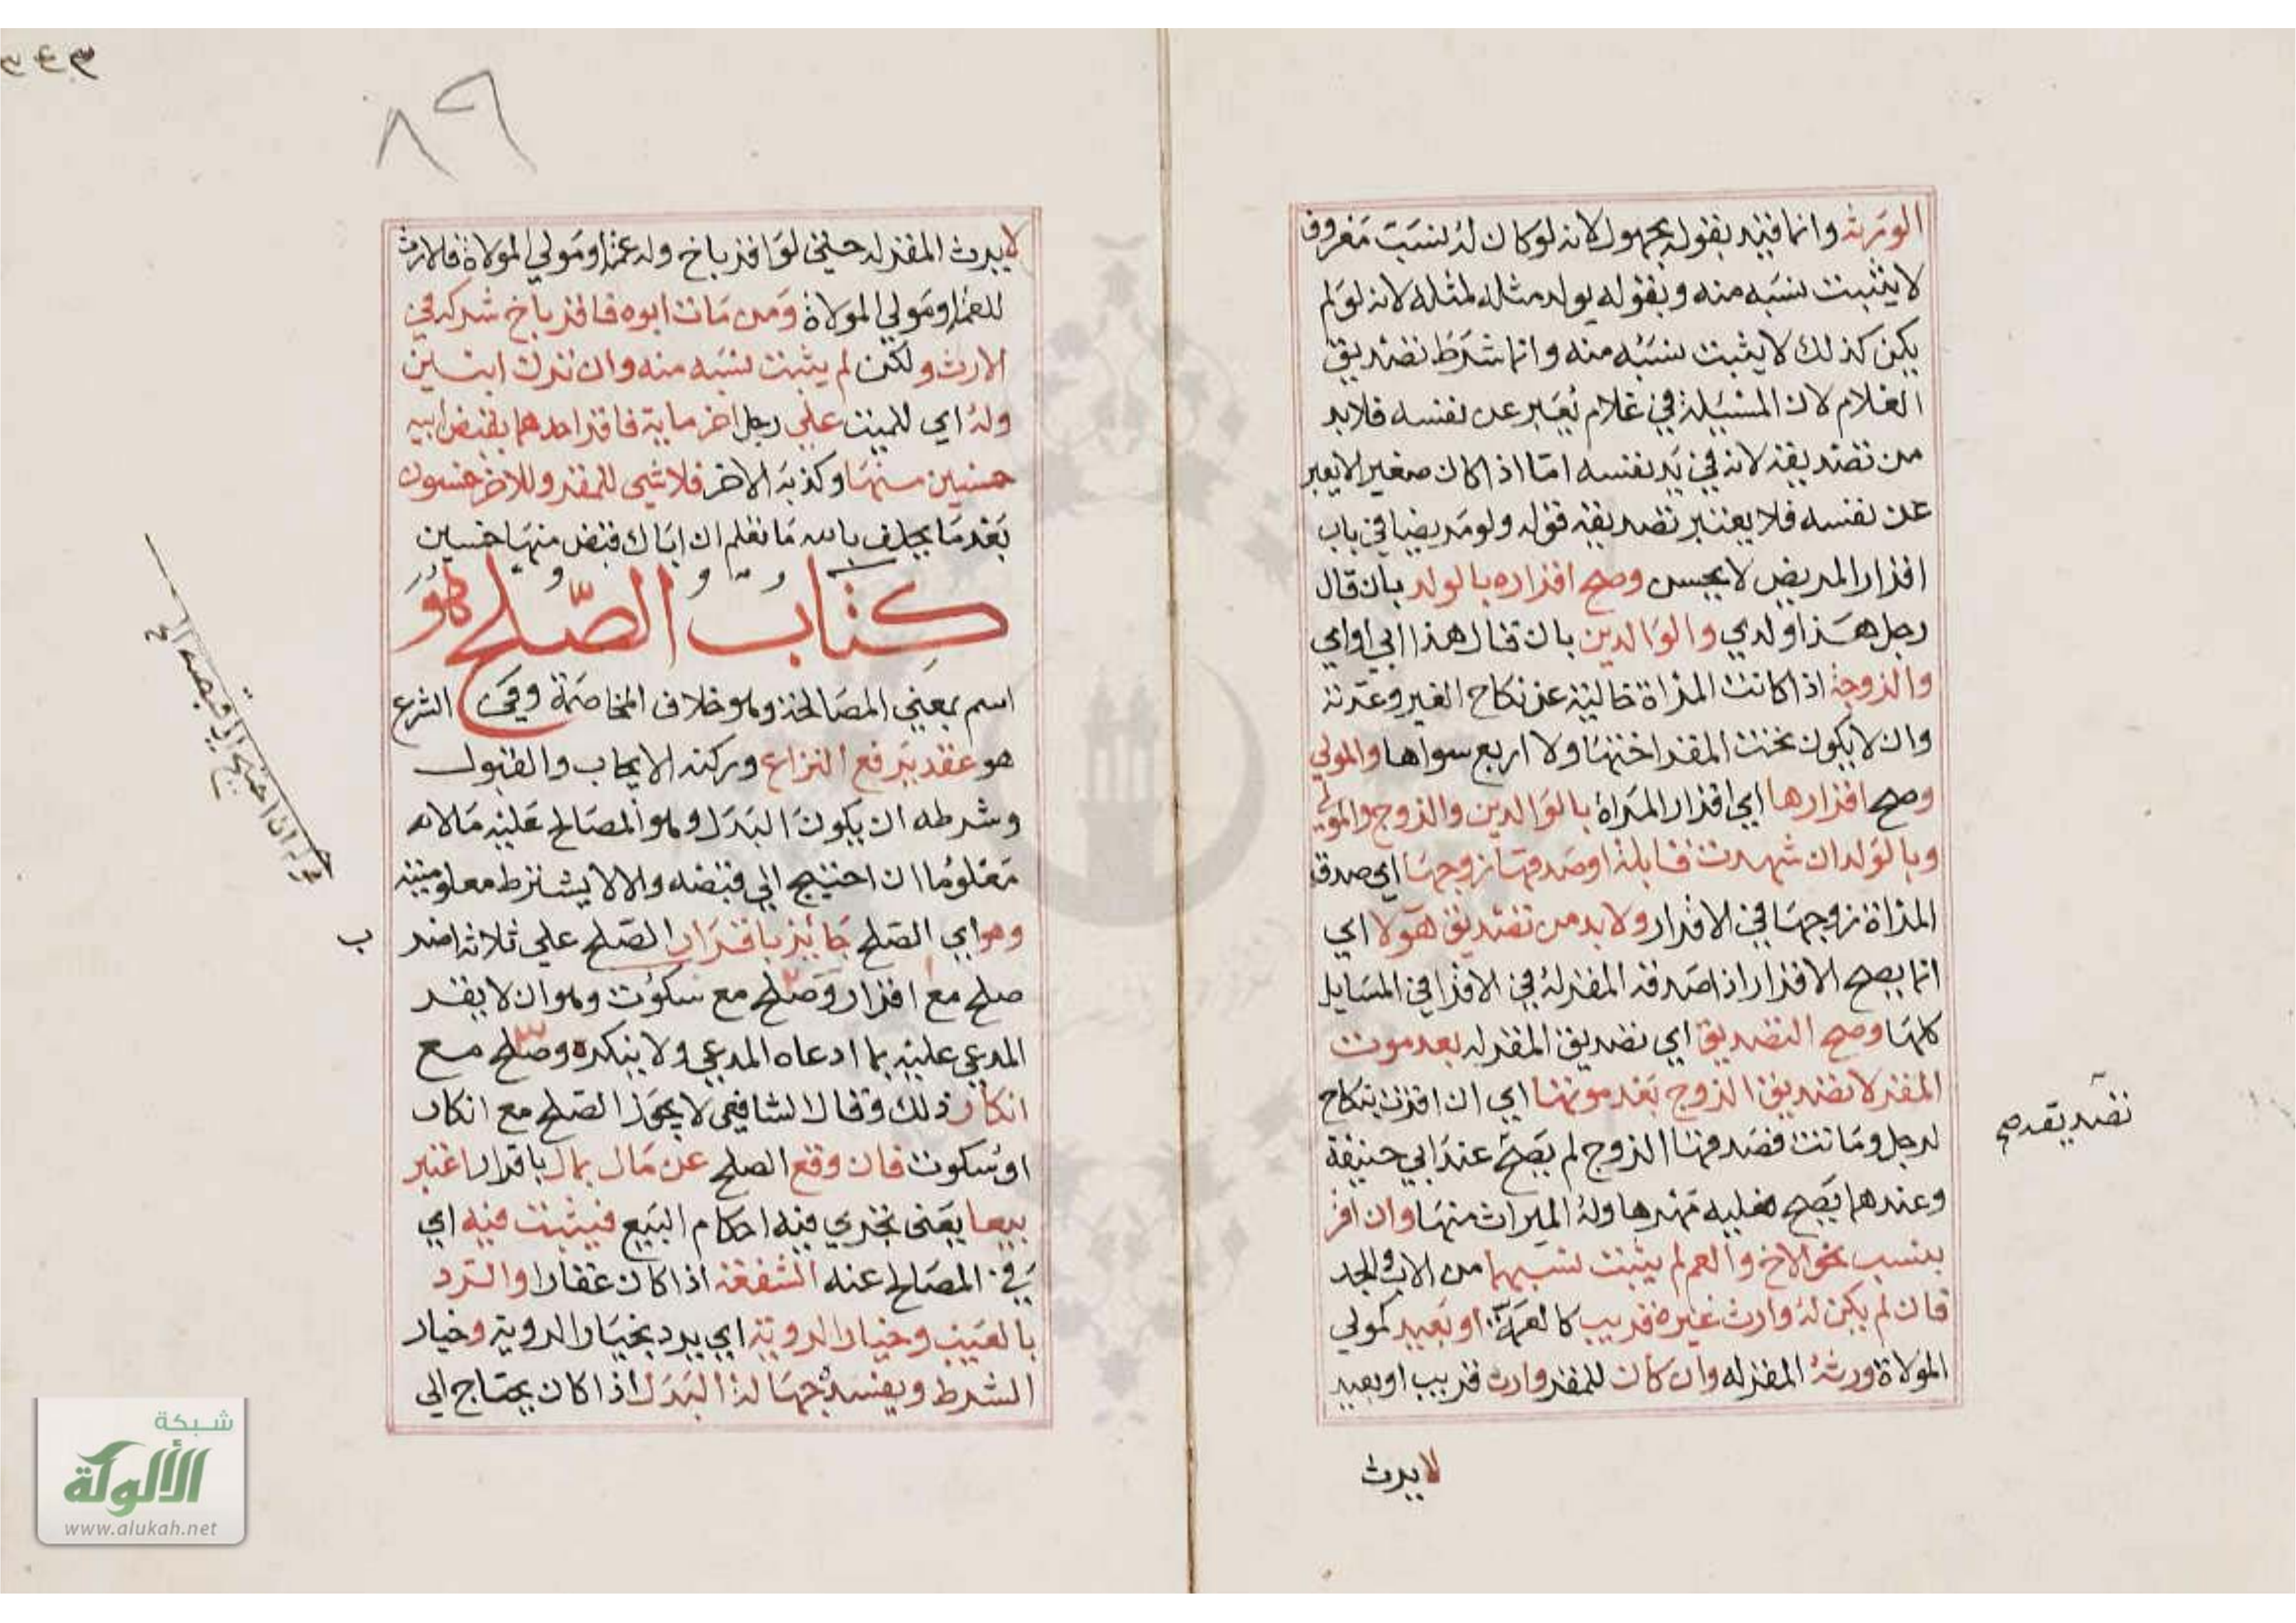 الورثة وانما قيد بقوله بمجهول لانه لو كان له نسب معروف
لا يثبت نسبه منه وبقوله يولد مثله لمثله لانه لو لم
يكن كذلك لا يثبت نسبه منه وانما شرط تصديق
الغلام لان المسيلة في غلام يعبر عن نفسه فلا بد
من تصديقه لانه في يد نفسه اما اذا كان صغيرا لا يعبر
عن نفسه فلا يعتبر تصديقه قوله ولو مريضا في باب
اقرار المريض لا يحبس وصح اقراره بالولد بان قال
رجل هذا ولدي والوالدين بان قال هذا ابي او امي
والزوجة اذا كانت المراة خالية عن نكاح الغير وعدته
وان لا يكون تحت المقر اختها ولا اربع سواها والمولي
وصح اقرارها اي اقرار المراة بالوالدين والزوج والمولي
وبالولد ان شهدت قابلة او صدقها زوجها اي صدق
المراة زوجها في الاقرار ولا بد من تصديق هولا اي
انما يصح الاقرار اذا صدقه المقر له في الاقرا في المسايل
كلها وصح التصديق اي تصديق المقر له بعد موت
المقر لا تصديق الزوج بعد موتها اي ان اقرت بنكاح
لرجل وماتت فصدقها الزوج لم يصح عند ابي حنيفة
وعندهما يصح فعليه مهرها وله الميراث منها وان اقر
بنسب نحو الاخ والعم لم يثبت نسبهما من الاب والجد
فان لم يكن له وارث غيره قريب كالعمة او بعيد كمولي
المولاة ورثه المقر له وان كان للمقر وارث قريب او بعيد
لا يرث
تصديقه صح
٨٩
لا يرث المقر له حتي لو اقر باخ وله عمة او مولي المولاة فالارث
للعمة او مولي المولاة ومن مات ابوه فاقر باخ شركه في
الارث ولكن لم يثبت نسبه منه وان ترك ابنين
وله اي للميت علي رجل اخر ماية فاقر احدهما بقبض ابيه
خمسين منها وكذبه الاخر فلا شي للمقر وللاخر خمسون
بعد ما يحلف بالله ما نعلم ان اباك قبض منها خمسين
كتاب الصلح هو
اسم بمعني المصالحة وهو خلاف المخاصمة وفي الشرع
هو عقد يرفع النزاع وركنه الايجاب والقبول
وشرطه ان يكون البدل وهو المصالح عليه مالا
معلوما ان احتيج الي قبضه والا لا يشترط معلوميته
وهو اي الصلح جائز باقرار الصلح علي ثلاثة اضر
ب
صلح مع اقرار وصلح مع سكوت وهو ان لا يقر
المدعي عليه بما ادعاه المدعي ولا ينكره وصلح مع
انكار ذلك وقال الشافعي لا يجوز الصلح مع انكار
او سكوت فان وقع الصلح عن مال بمال باقرار اعتبر
بيعا يعني تجري فيه احكام البيع فيثبت فيه اي
في المصالح عنه الشفعة اذا كان عقارا والرد
بالعيب وخيار الروية اي يرد بخيار الروية وخيار
الشرط ويفسده جهالة البدل اذا كان يحتاج الي
قوله ان احتيج الي قبضه الخ
شبكة
الألوكة
www.alukah.net